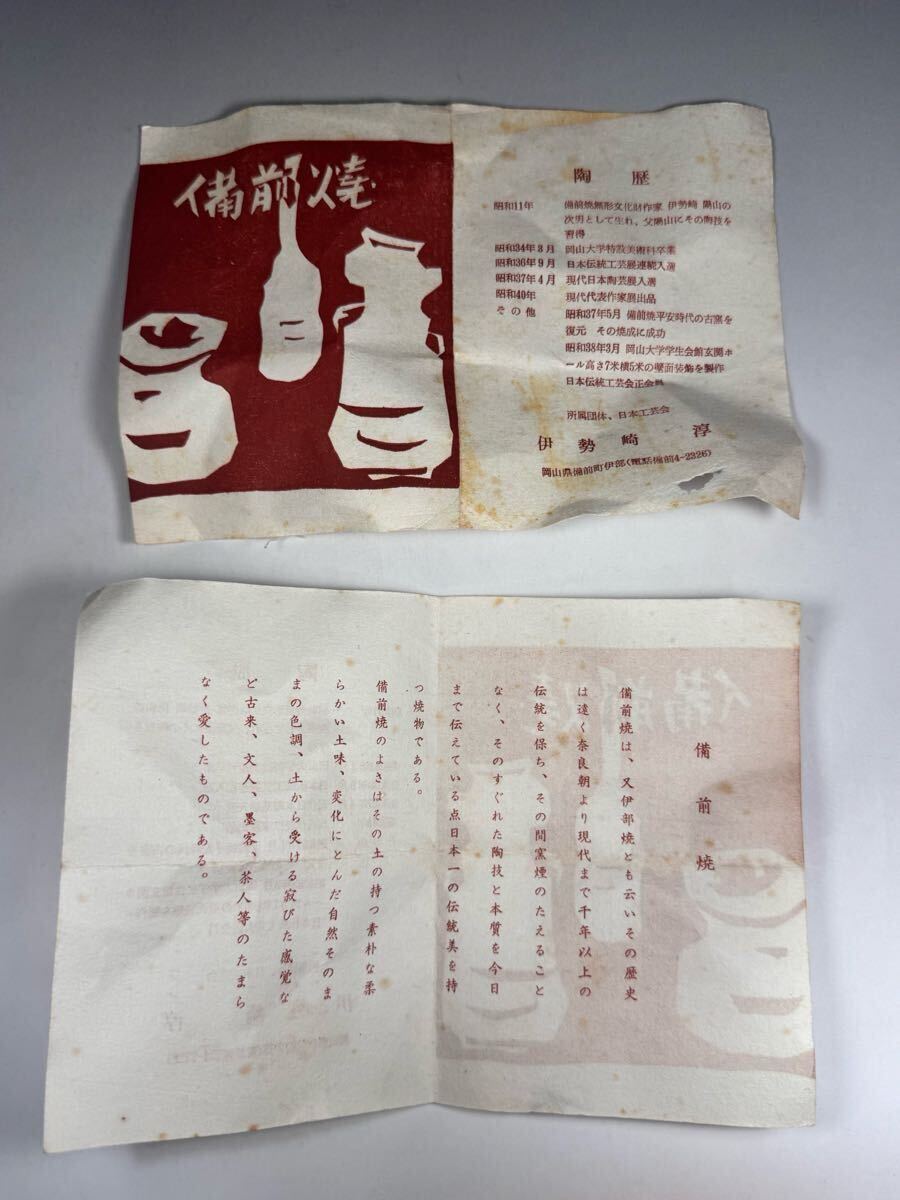 備前燒
陶歴
昭和11年 備前焼無形文化財作家 伊勢崎 陽山の
次男として生れ、父陽山にその陶技を
習得
昭和34年3月 岡山大学特設美術科卒業
昭和36年9月 日本伝統工芸展連続入選
昭和37年4月 現代日本陶芸展入選
昭和40年 現代代表作家展出品
その他 昭和37年5月 備前焼平安時代の古窯を
復元 その焼成に成功
昭和38年3月 岡山大学学生会館玄関ホ
ール高さ7米横5米の壁面装飾を製作
日本伝統工芸会正会員
所属団体、日本工芸会
伊勢崎 淳
岡山県備前町伊部(電話備前4-2226)
備前燒
備前燒は、又伊部燒とも云いその歴史
は遠く奈良朝より現代まで千年以上の
伝統を保ち、その間窯煙のたえること
なく、そのすぐれた陶技と本質を今日
まで伝えている点日本一の伝統美を持
つ燒物である。
備前燒のよさはその土の持つ素朴な柔
らかい土味、変化にとんだ自然そのま
まの色調、土から受ける寂びた感覚な
ど古来、文人、墨客、茶人等のたまら
なく愛したものである。